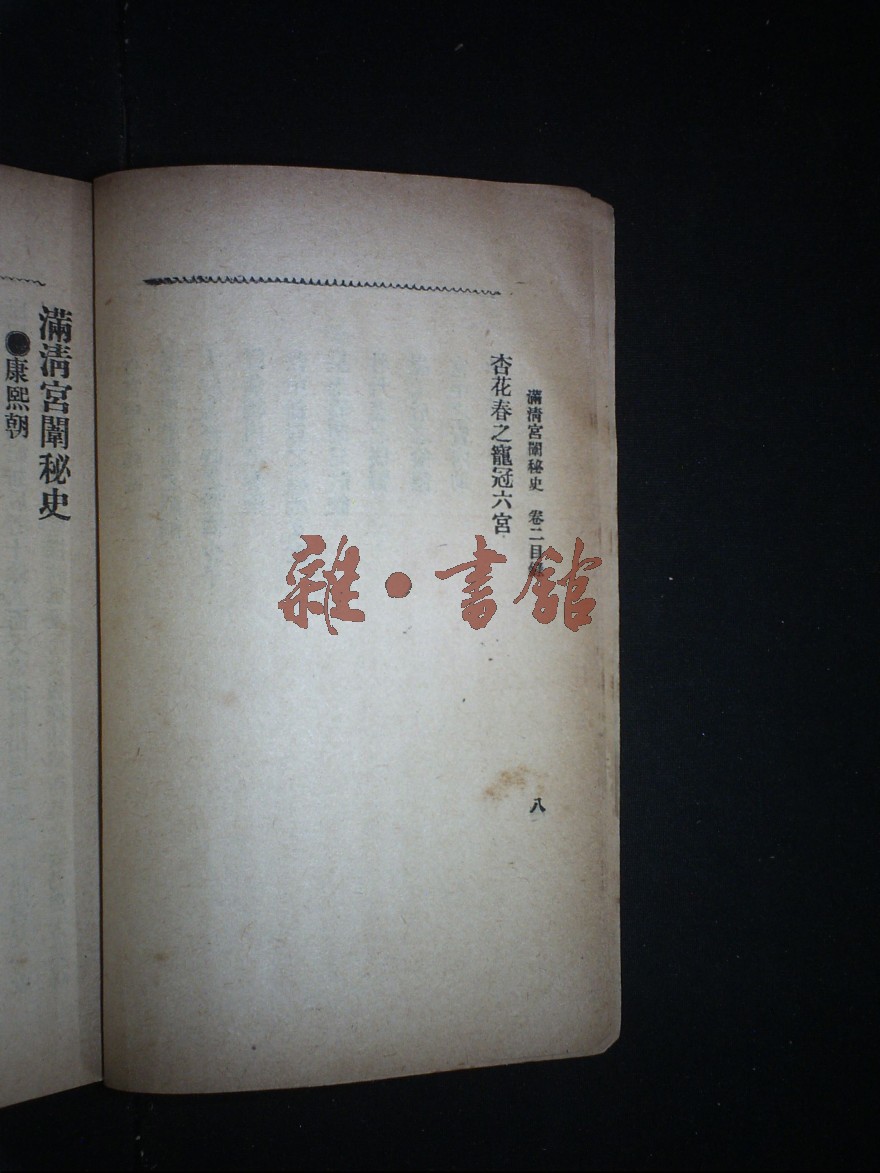 滿清宮闈秘史　卷二目錄
杏花春之寵冠六宮
八
滿清宮闈秘史
●康熙朝
雜・書館